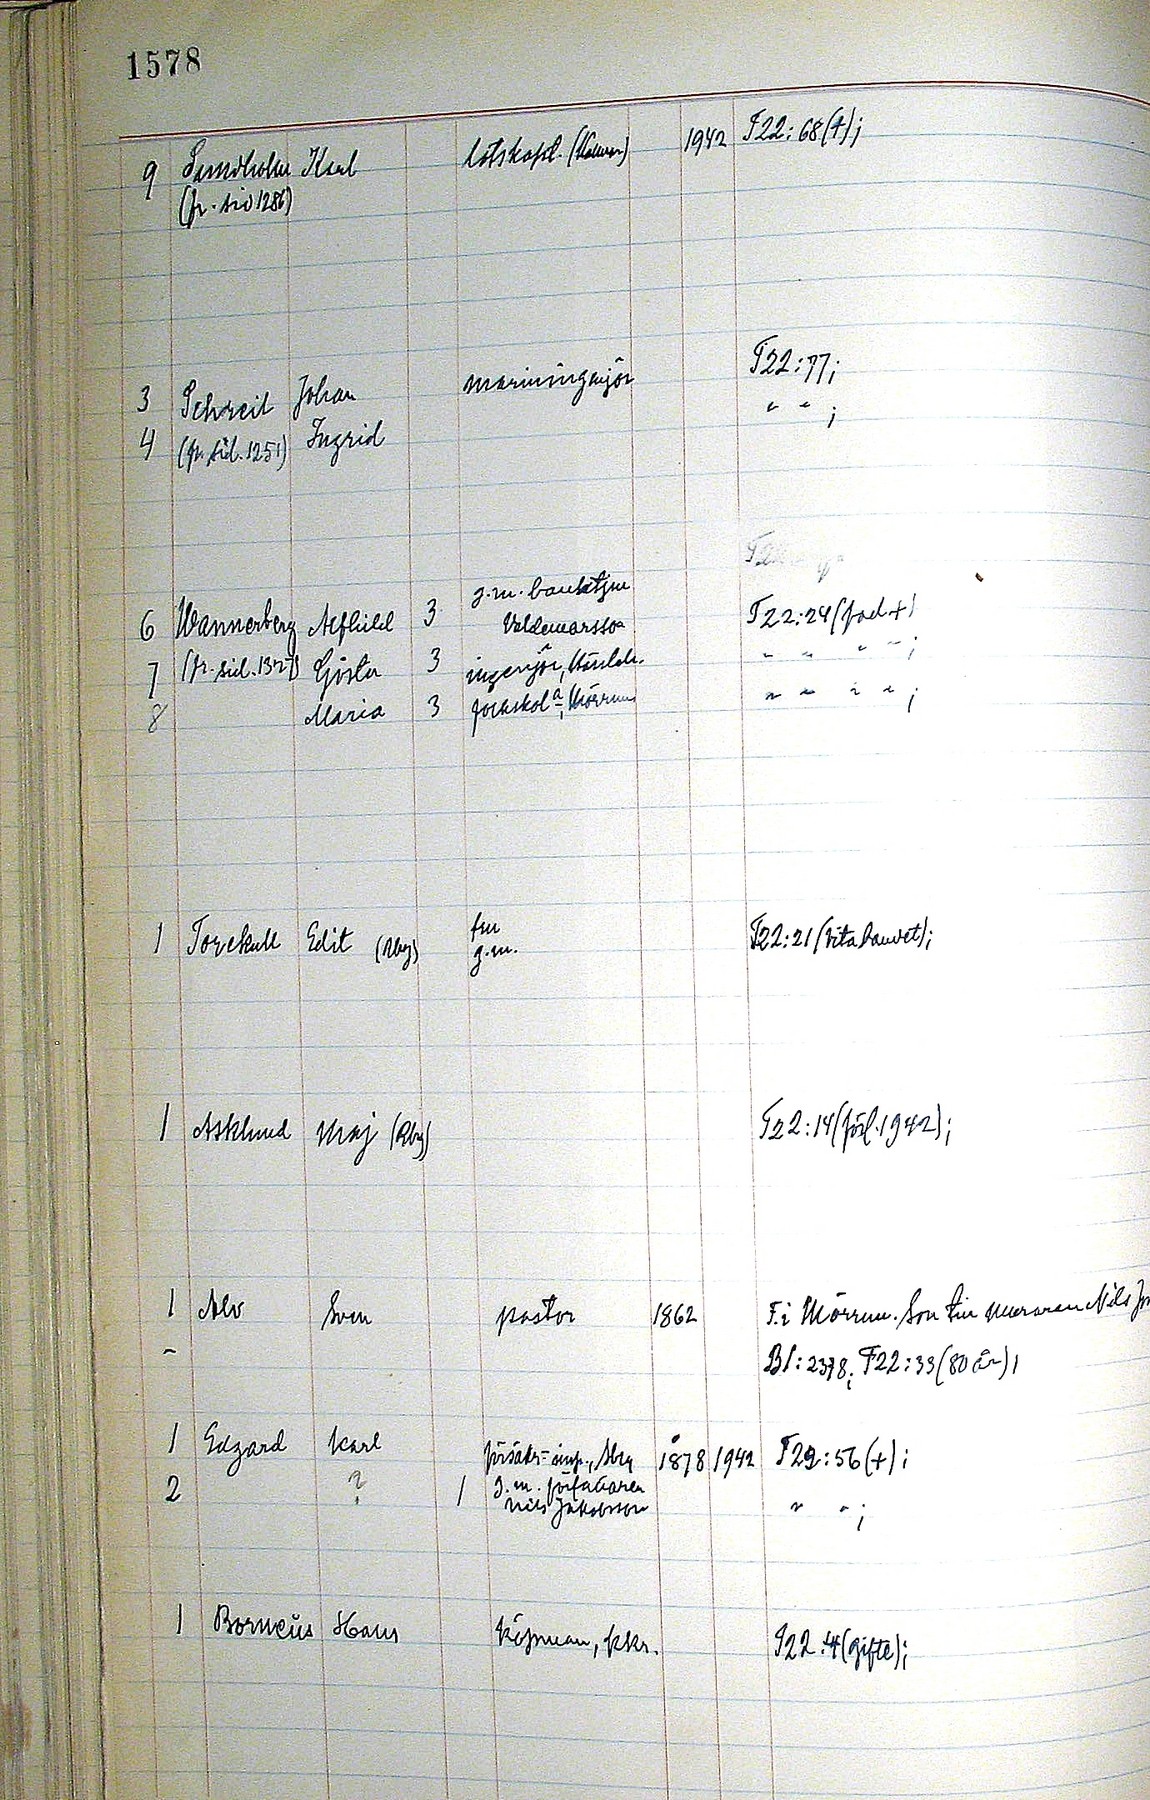 1578
9 Sandholm Karl lotskapt. (Kalmar) 1942 T22:68(+);
(fr. sid 1286)
3 Schreil Johan mariningenjör T22:77;
4 (fr. sid. 1251) Ingrid " " ;
g.m. banktjm
6 Wannerberg Alfhild 3 Valdemarsson T22:24(fad.+)
7 (fr. sid. 1327) Gösta 3 ingenjör, " " " " ;
8 Maria 3 folkskol a, Mörrum " " " " ;
1 Torekull Edit (Rby) fru T22:21(Vita bandet);
g.m.
1 Asklund Maj (Rby) T22:14(förl. 1942);
1 Alv Sven pastor 1862 F. i Mörrum. Son till muraren Nils
- B1:2378; T22:33(80 år);
1 Edgard Karl försäkr-insp., 1878 1942 T22:56(+);
2 ? 1 g.m. författaren " " ;
Nils Jakobsson
1 Borneüs Hans köpman, kkr. T22:4(gifte);